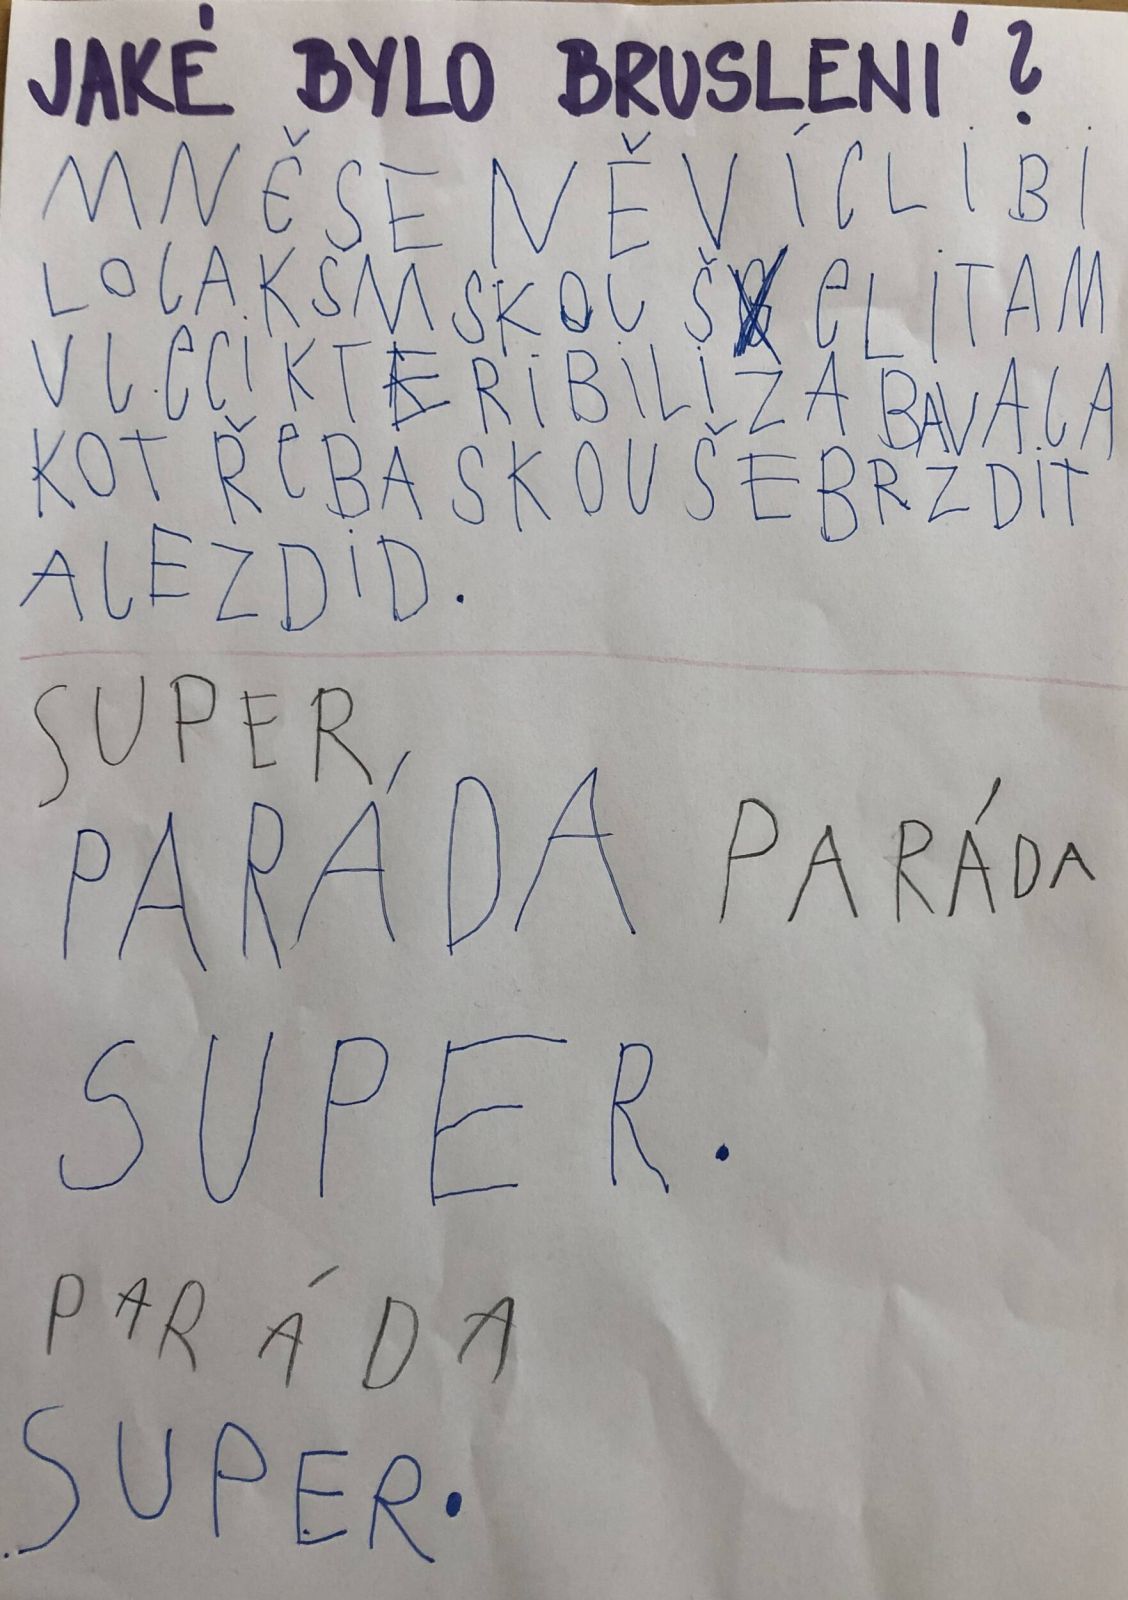 JAKÉ BYLO BRUSLENÍ?
MNĚSENĚVÍCLIBI
LOLAKSMSKOUŠELITAM
VLECIKTERIBILIZABAVALA
KOTŘEBASKOUŠEBRZDIT
ALEZDID.
SUPER,
PARÁDA PARÁDA
SUPER.
PARÁDA
SUPER.